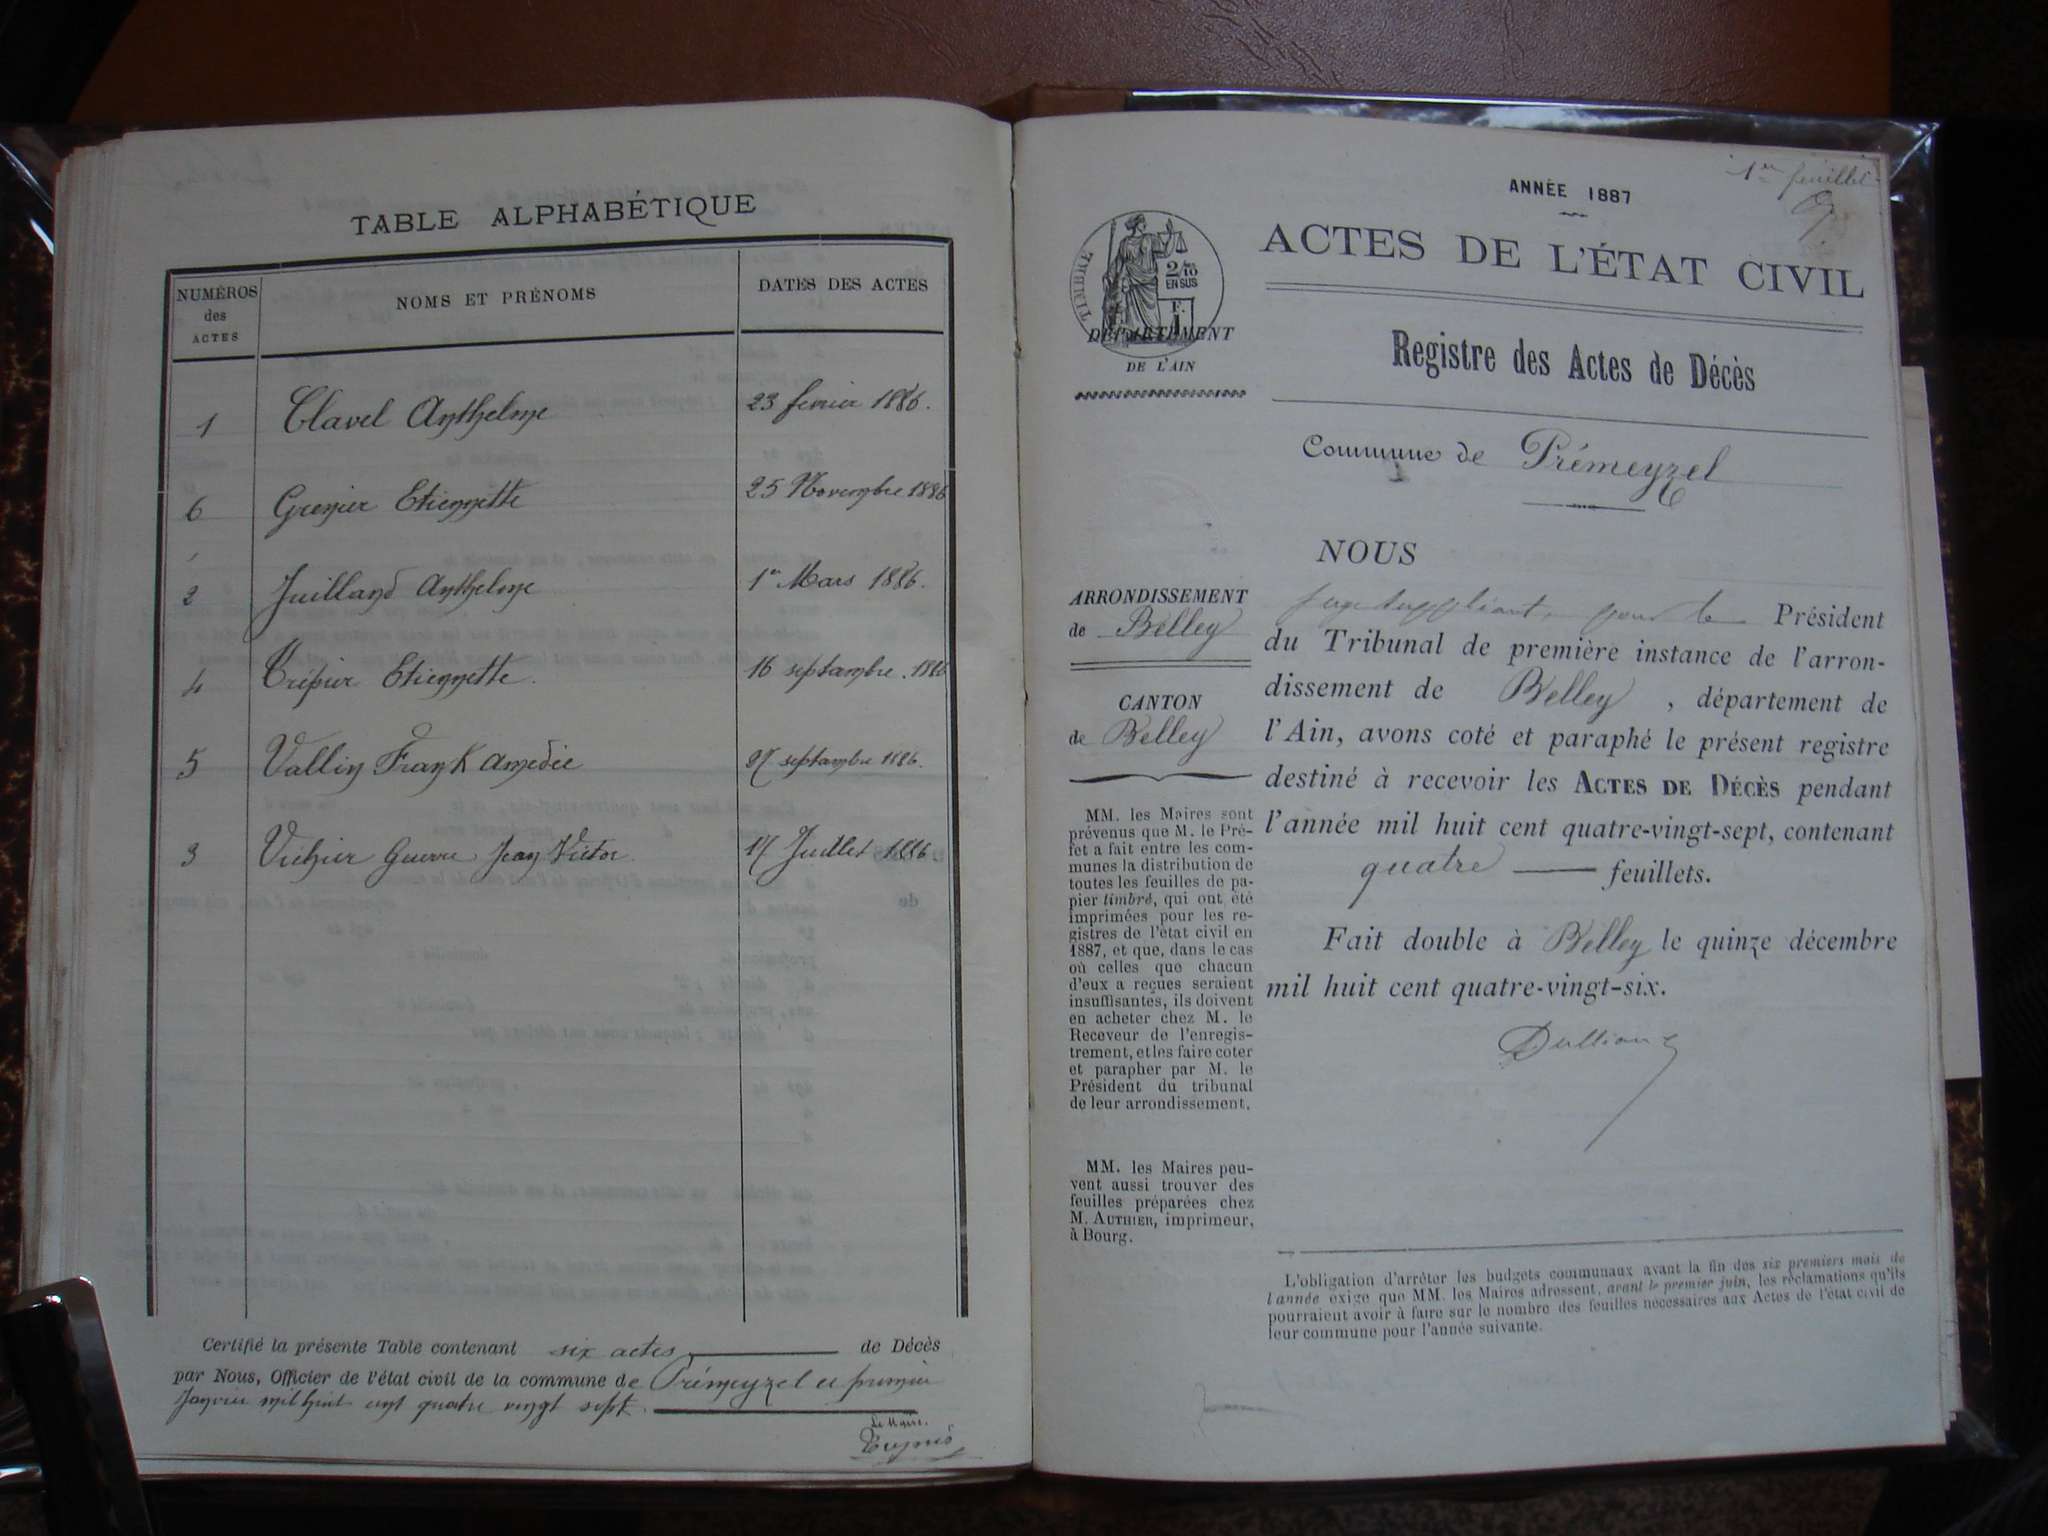 TABLE ALPHABÉTIQUE
NUMÉROS des ACTES
NOMS ET PRÉNOMS
DATES DES ACTES
1 Clavel Anthelme 23 fevrier 1886.
6 Grenier Etiennette 25 Novembre 1886
2 Juilland Anthelme 1er Mars 1886.
4 Trépier Etiennette. 16 septembre. 1886
5 Vallin Frank Amedée 27 septembre 1886.
3 Vichier Guerre Jean Victor. 17 Juillet 1886
Certifié la présente Table contenant six actes de Décès
par Nous, Officier de l'état civil de la commune de Prémeyzel ce premier
Janvier mil huit cent quatre vingt sept.
Le Maire.
1er feuillet
ANNÉE 1887
ACTES DE L'ÉTAT CIVIL
TIMBRE
2/10
EN SUS
F.
1
DÉPARTEMENT
DE L'AIN
Registre des Actes de Décès
Commune de Prémeyzel
ARRONDISSEMENT
de Belley
CANTON
de Belley
MM. les Maires sont
prévenus que M. le Pré-
fet a fait entre les com-
munes la distribution de
toutes les feuilles de pa-
pier timbré, qui ont été
imprimées pour les re-
gistres de l'état civil en
1887, et que, dans le cas
où celles que chacun
d'eux a reçues seraient
insuffisantes, ils doivent
en acheter chez M. le
Receveur de l'enregis-
trement, et les faire coter
et parapher par M. le
Président du tribunal
de leur arrondissement.
MM. les Maires peu-
vent aussi trouver des
feuilles préparées chez
M. AUTHIER, imprimeur,
à Bourg.
NOUS
juge suppléant, pour le Président
du Tribunal de première instance de l'arron-
dissement de Belley, département de
l'Ain, avons coté et paraphé le présent registre
destiné à recevoir les ACTES DE DÉCÈS pendant
l'année mil huit cent quatre-vingt-sept, contenant
quatre feuillets.
Fait double à Belley le quinze décembre
mil huit cent quatre-vingt-six.
L'obligation d'arrêter les budgets communaux avant la fin des six premiers mois de
l'année exige que MM. les Maires adressent, avant le premier juin, les réclamations qu'ils
pourraient avoir à faire sur le nombre des feuilles nécessaires aux Actes de l'état civil de
leur commune pour l'année suivante.